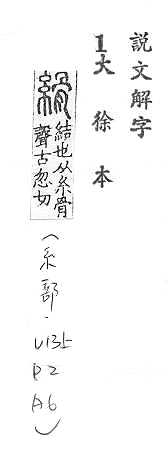 說文解字
1大徐本
縎 結也从糸骨
聲古忽切
(糸部.V13上
P2
A6)